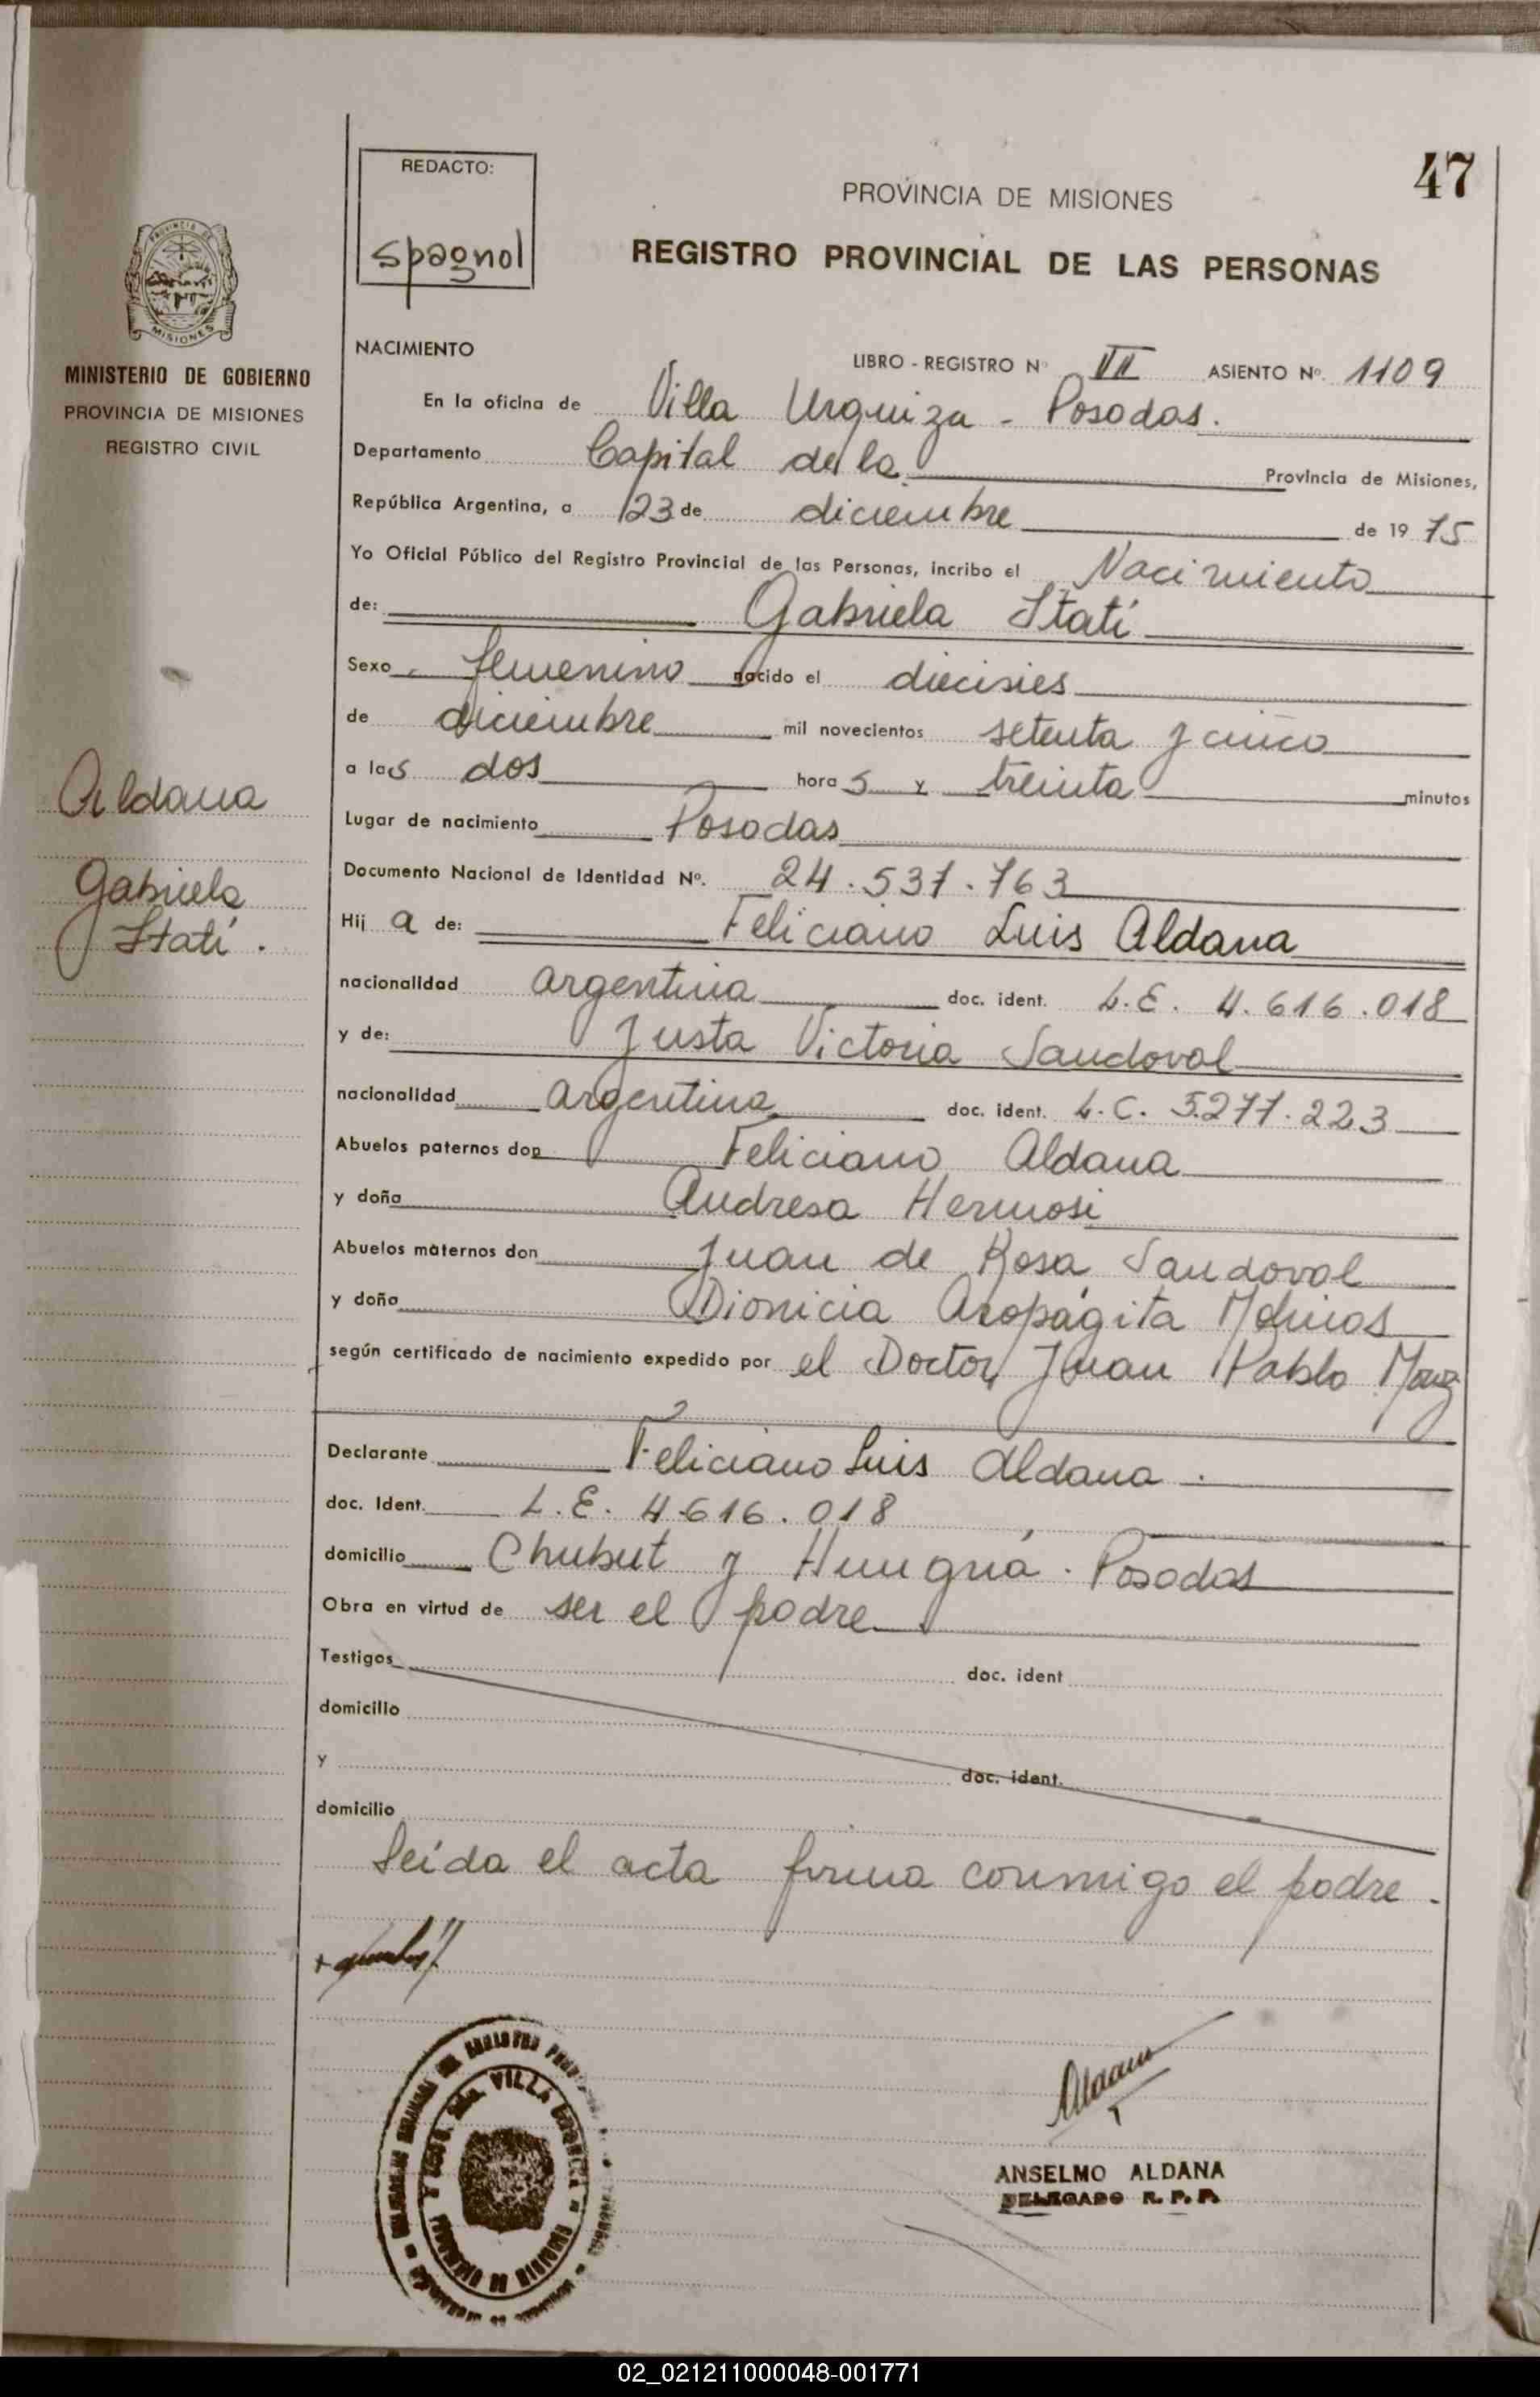 47
REDACTO:
spagnol
PROVINCIA DE MISIONES
REGISTRO PROVINCIAL DE LAS PERSONAS
PROVINCIA DE
MISIONES
MINISTERIO DE GOBIERNO
PROVINCIA DE MISIONES
REGISTRO CIVIL
NACIMIENTO
LIBRO - REGISTRO Nº VII ASIENTO Nº. 1109
En la oficina de Villa Urquiza - Posadas.
Departamento Capital de la Provincia de Misiones,
República Argentina, a 23 de diciembre de 1975
Yo Oficial Público del Registro Provincial de las Personas, incribo el Nacimiento
de: Gabriela Itatí
Sexo femenino nacido el diecisies
de diciembre mil novecientos setenta y cinco
a las dos horas y treinta minutos
Lugar de nacimiento Posadas
Documento Nacional de Identidad Nº. 24.537.763
Hija de: Feliciano Luis Aldana
nacionalidad argentina doc. ident. L.E. 4.616.018
y de: Justa Victoria Sandoval
nacionalidad argentina doc. ident. L.C. 5.277.223
Abuelos paternos don Feliciano Aldana
y doña Andresa Hermosi
Abuelos maternos don Juan de Rosa Sandoval
y doña Dionicia Aropágita Molinas
según certificado de nacimiento expedido por el Doctor Juan Pablo
Declarante Feliciano Luis Aldana.
doc. Ident. L.E. 4.616.018
domicilio Chubut y Hungría. Posadas
Obra en virtud de ser el padre
Testigos doc. ident
domicilio
y doc. ident.
domicilio
Leída el acta firma conmigo el padre.
Aldana
Gabriela
Itatí.
VILLA
Aldana
ANSELMO ALDANA
DELEGADO R. P. P.
02_021211000048-001771